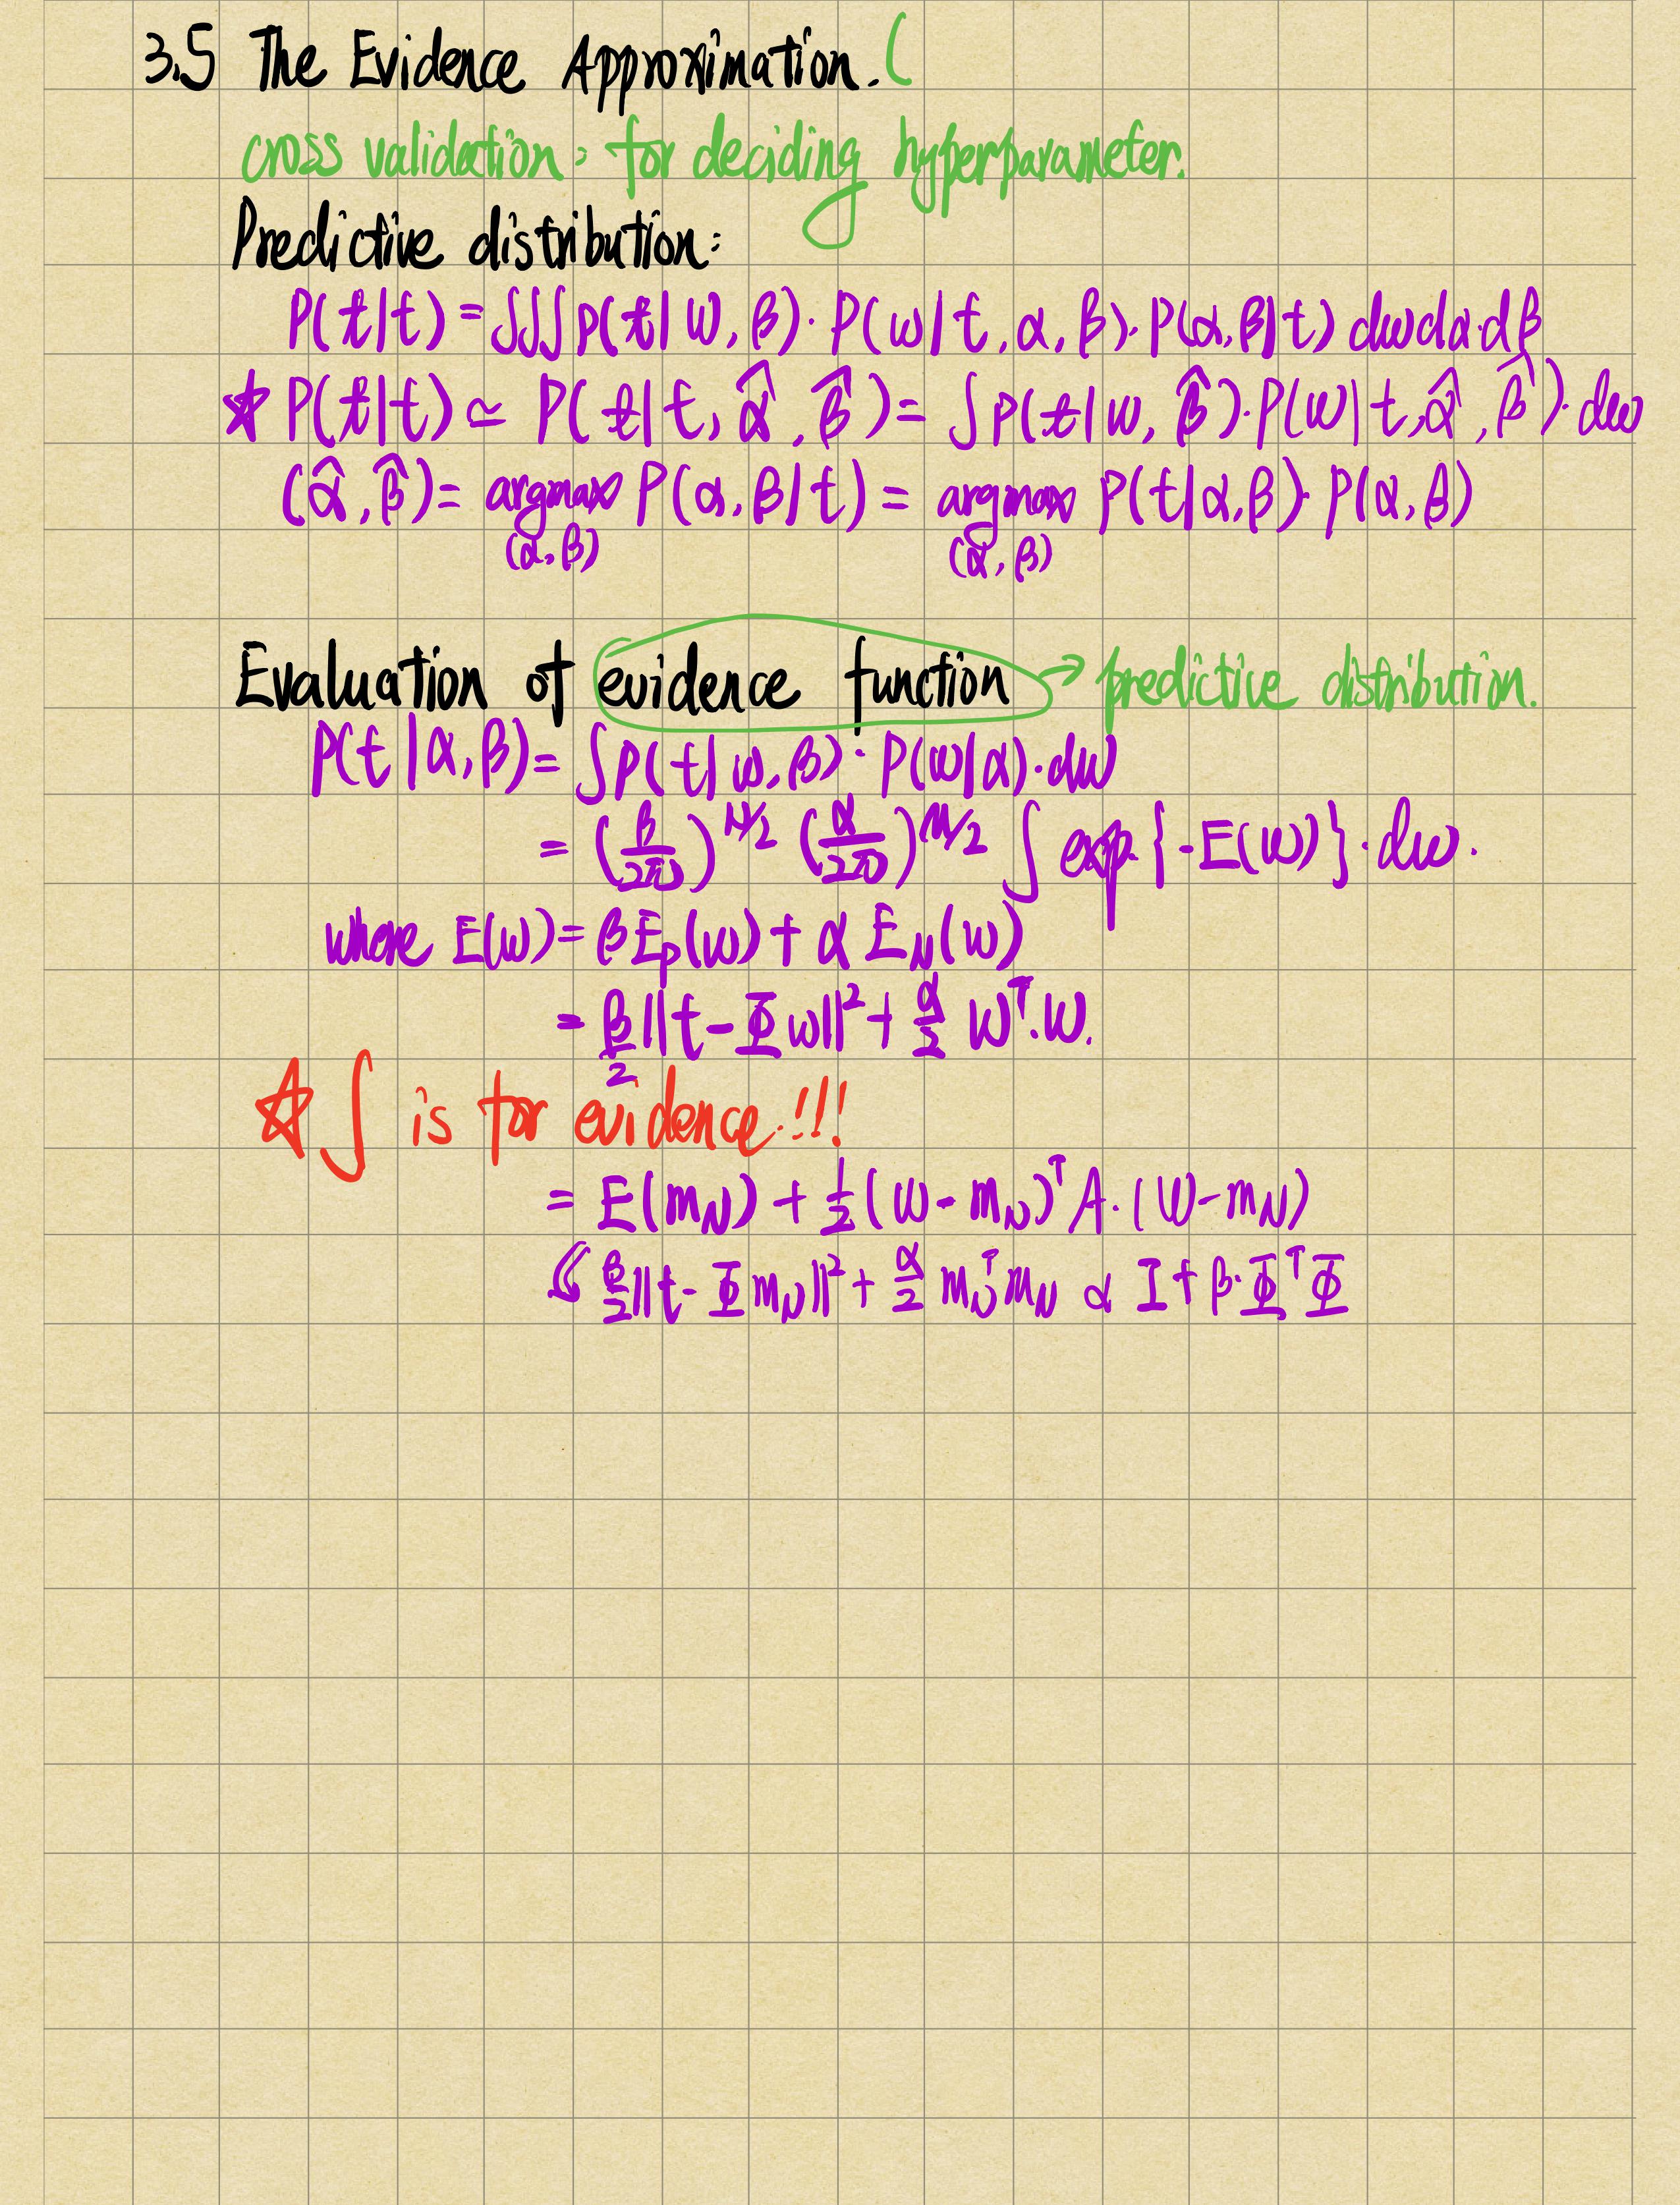 3.5 The Evidence Approximation. (
cross validation: for deciding hyperparameter.
Predictive distribution:
P(t|t) = ∫∫∫ p(t|w, β)· P(w|t, α, β)· P(α, β|t) dw dα·dβ
☆ P(t|t) ≃ P(t|t, α̂, β̂) = ∫ p(t|w, β̂)· P(w|t, α̂, β̂)· dw
(α̂, β̂) = argmax P(α, β|t) = argmax P(t|α, β)· P(α, β)
(α, β) (α, β)
Evaluation of evidence function → predictive distribution.
P(t|α, β) = ∫ P(t|w, β)· P(w|α)· dw
= (β/2π)^N/2 (α/2π)^M/2 ∫ exp. {-E(w)}· dw.
where E(w) = βE_D(w) + α E_W(w)
= β/2 ||t - Φw||² + α/2 wᵀ·w.
☆ ∫ is for evidence.!!!
= E(m_N) + 1/2 (w - m_N)ᵀ A· (w - m_N)
β/2 ||t - Φm_N||² + α/2 m_Nᵀ m_N α I + β· Φᵀ Φ